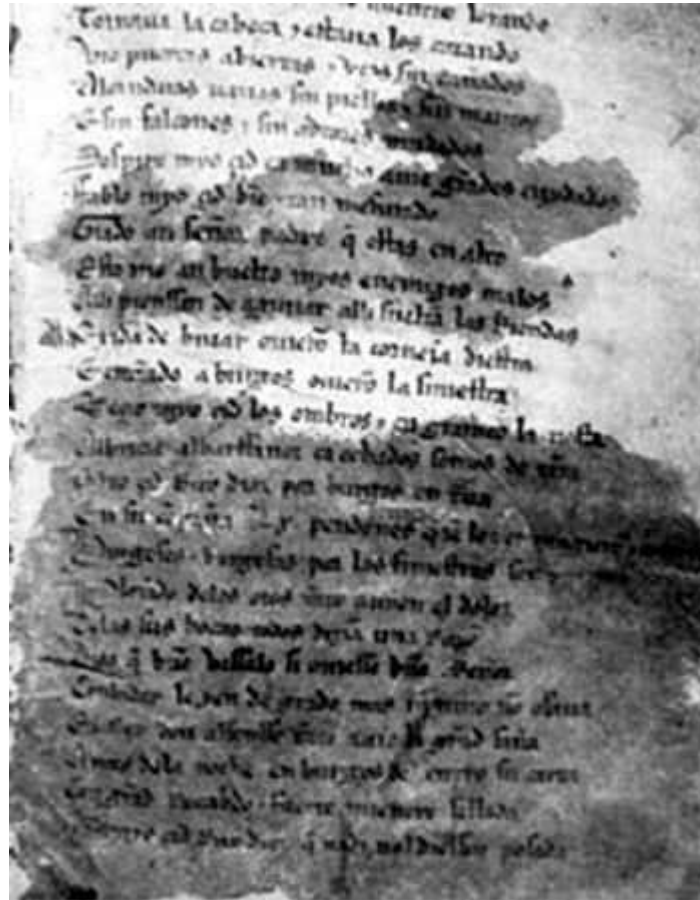 mientre lorando
Tornaua la cabeça ⁊ estaua los catando
Vio puertas abiertas ⁊ vços sin cañados
Alcandaras uazias sin pielles ⁊ sin mantos
E sin falcones ⁊ sin adtores mudados
Sospiro myo çid ca mucho auie grãdes cuydados
Ffablo myo çid biẽ ⁊ tan mesurado
Grado a ti señor padre q̃ estas en alto
Esto me an buelto myos enemigos malos
Alli pienssan de aguijar alli sueltã las Riendas
exida de biuar ouierõ la corneia diestra
E entrãdo a burgos ouierõ la siniestra
Meçio myo çid los ombros ⁊ engrameo la tiesta
Albricia albarffanez ca echados somos de tr̃ra
Myo çid Ruy diaz por burgos
En su cõpaña .Lx. pendones
Burgeses ⁊ burgesas por las finiestras son
Plorando delos oios tãto auyen el dolor
Delas sus bocas todos diziã una
Dios q̃ buẽ vassalo si ouiesse buẽ Señor
Conbidar le yen de grado mas ninguno nõ osaua
don alfonsso tãto auie la grãd saña
Antes dela noche en burgos del entro su carta
Con grãd Recabdo ⁊ fuerte mientre sellada
myo çid Ruy diaz q̃ nadi nol diessen posada